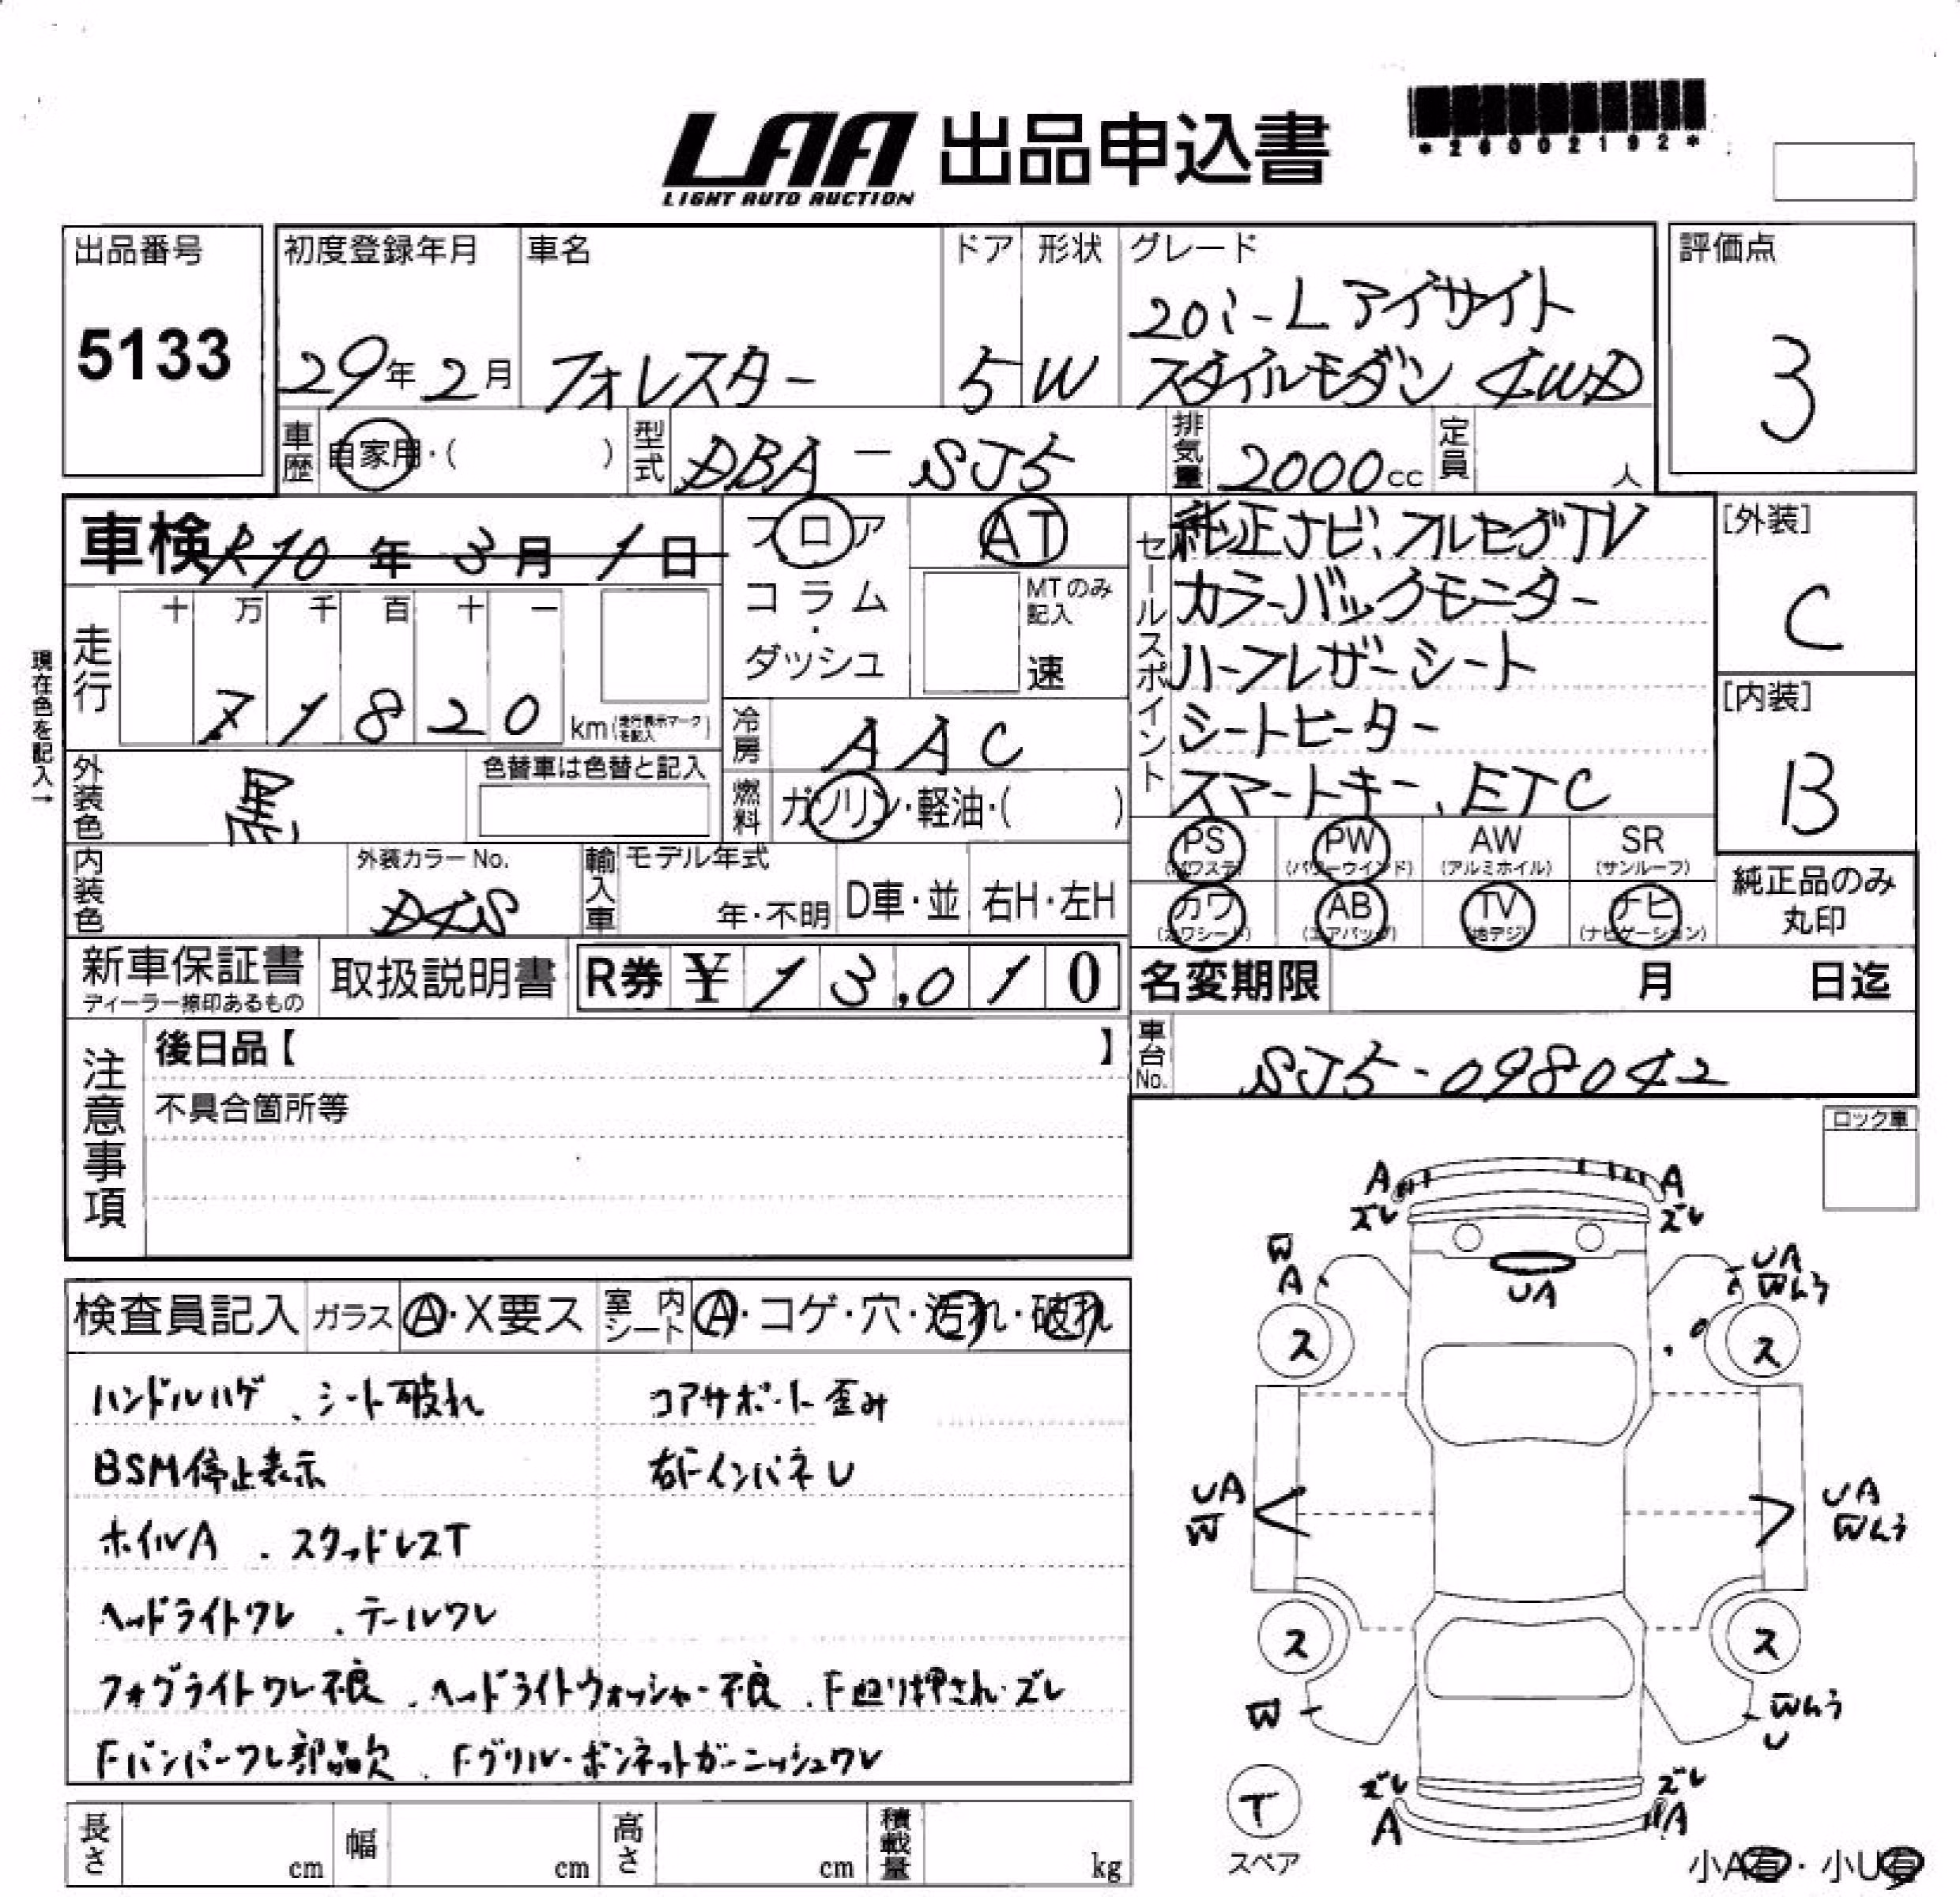 LAA 出品申込書
LIGHT AUTO AUCTION
*26002192*
出品番号
5133
初度登録年月
29年2月
車名
フォレスター
ドア
5
形状
W
グレード
20i-L アイサイト
スタイルモダン 4WD
評価点
3
車歴
自家用・( )
型式
DBA-SJ5
排気量
2000cc
定員
人
車検 R10年3月1日
フロア
コラム
・
ダッシュ
AT
MTのみ
記入
速
セールスポイント
純正ナビ、フルセグTV
カラーバックモニター
ハーフレザーシート
シートヒーター
スマートキー、ETC
[外装]
C
[内装]
B
現在色を記入→
走行
十 万 千 百 十 一
7 1 8 2 0 km (走行表示マークを記入)
冷房
AAC
外装色
黒
色替車は色替と記入
燃料
ガソリン・軽油・( )
PS
(パワステ)
PW
(パワーウインド)
AW
(アルミホイル)
SR
(サンルーフ)
カワ
(カワシート)
AB
(エアバッグ)
TV
(地デジ)
ナビ
(ナビゲーション)
純正品のみ
丸印
内装色
外装カラーNo.
D4S
輸入車
モデル年式
年・不明
D車・並
右H・左H
新車保証書
ディーラー捺印あるもの
取扱説明書
R券 ¥13,010
名変期限 月 日迄
車台No.
SJ5-098042
注意事項
後日品【 】
不具合箇所等
ロック車
検査員記入
ガラス
A・X要ス
室内シート
A・コゲ・穴・汚れ・破れ
ハンドルハゲ、シート破れ
コアサポート歪み
BSM停止表示
右FインパネU
ホイルA . スタッドレスT
ヘッドライトワレ . テールワレ
フォグライトワレ不良 . ヘッドライトウォッシャー不良 . F廻り押され・ズレ
Fバンパーワレ部品欠 . Fグリル・ボンネットガーニッシュワレ
A
ズレ
A
ズレ
W
A
UA
UA
Wんう
ス
ス
UA
W
UA
Wんう
ス
ス
W
Wんう
U
ズレ
A
ズレ
A
T
スペア
小A有・小U有
長さ
cm
幅
cm
高さ
cm
積載量
kg